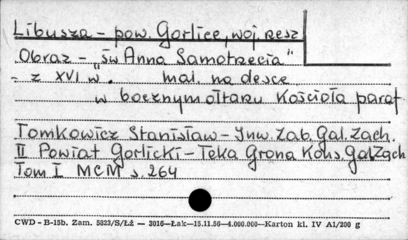 Libusza - pow. Gorlice, woj. Resz
Obraz - "św Anna Samotrzecia"
- z XVI w. mal. na desce
w bocznym ołtarzu Kościoła paraf
Tomkowicz Stanisław - Inw. Zab. Gal. Zach.
II Powiat Gorlicki - Teka Grona Kons. Gal Zach
Tom I MCM s. 264
CWD - B-15b. Zam. 5823/S/Łż — 3016—Łak—15.11.56—4.000.000—Karton kl. IV A1/200 g